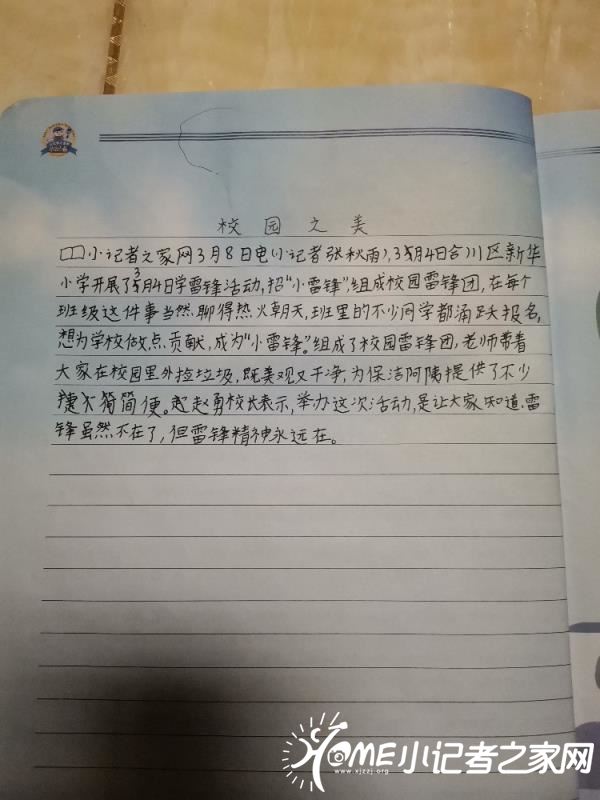 校园之美
囗囗小记者之家网3月8日电(小记者张秋雨),3月4日合川区新华
小学开展了3月4日学雷锋活动,招“小雷锋”,组成校园雷锋团,在每个
班级这件事当然聊得热火朝天,班里的不少同学都涌跃报名,
想为学校做点贡献,成为“小雷锋”。组成了校园雷锋团,老师带着
大家在校园里外捡垃圾,既美观又干净,为保洁阿姨提供了不少
简便。赵勇校长表示,举办这次活动,是让大家知道,雷
锋虽然不在了,但雷锋精神永远在。
HOME小记者之家网
www.xjzzj.org